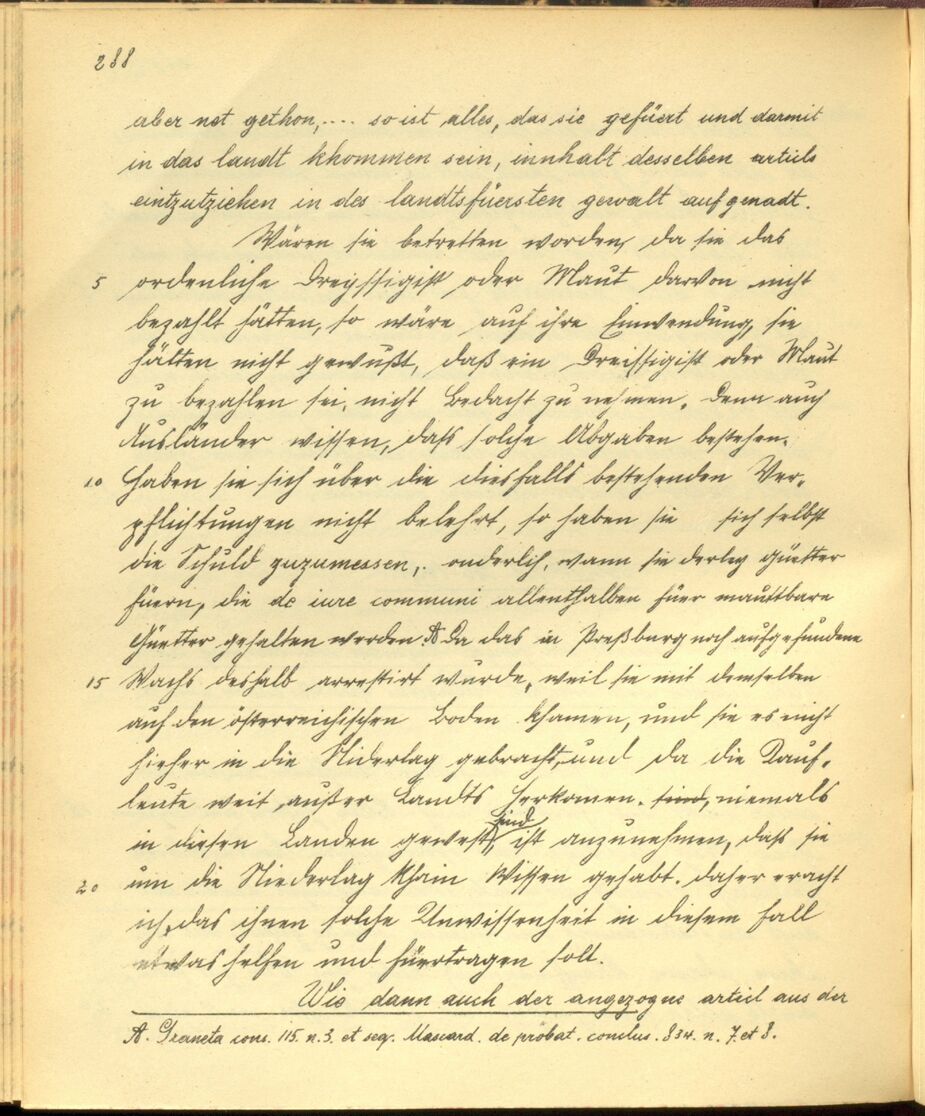 288
aber net gethon,.... so ist alles, das sie gefüert und darmit
in das landt khommen sein, innhalt desselben articls
eintzutziehen in des landtsfüersten gewalt aufgmadt.
Wären sie betretten worden, da sie das
5 ordenliche Dreyssigist oder Maut darvon nicht
bezahlt hätten, so wäre auf ihre Einwendung, sie
hätten nicht gewußt, daß ein Dreissigist oder Maut
zu bezahlen sei, nicht Bedacht zu nehmen. Denn auch
Ausländer wissen, dass solche Abgaben bestehen.
10 Haben sie sich über die diesfalls bestehenden Ver-
pflichtungen nicht belehrt, so haben sie sich selbst
die Schuld zuzumessen, onderlich, wann sie derley güetter
füern, die de iure communi allenthalben füer mauttbare
Güetter gehalten werden. A Da das in Preßburg noch aufgefundene
15 Wachs deshalb arrestirt wurde, weil sie mit demselben
auf den österreichischen Boden khamen, und sie es nicht
hieher in die Niderlag gebracht, und da die Kauf-
leute weit außer Landts herkomen. sind, niemals
in diesen Landen gewest sind, ist anzunehmen, dass sie
20 um die Niederlag khain Wissen gehabt. daher eracht
ich, das ihnen solche Unwissenheit in diesem fall
etwas helfen und füertragen soll.
Wie dann auch der angezogne articl aus der
A. Graneta cons. 115. n. 3. et seq. Mascard. de probat. conclus. 834. n. 7. et 8.